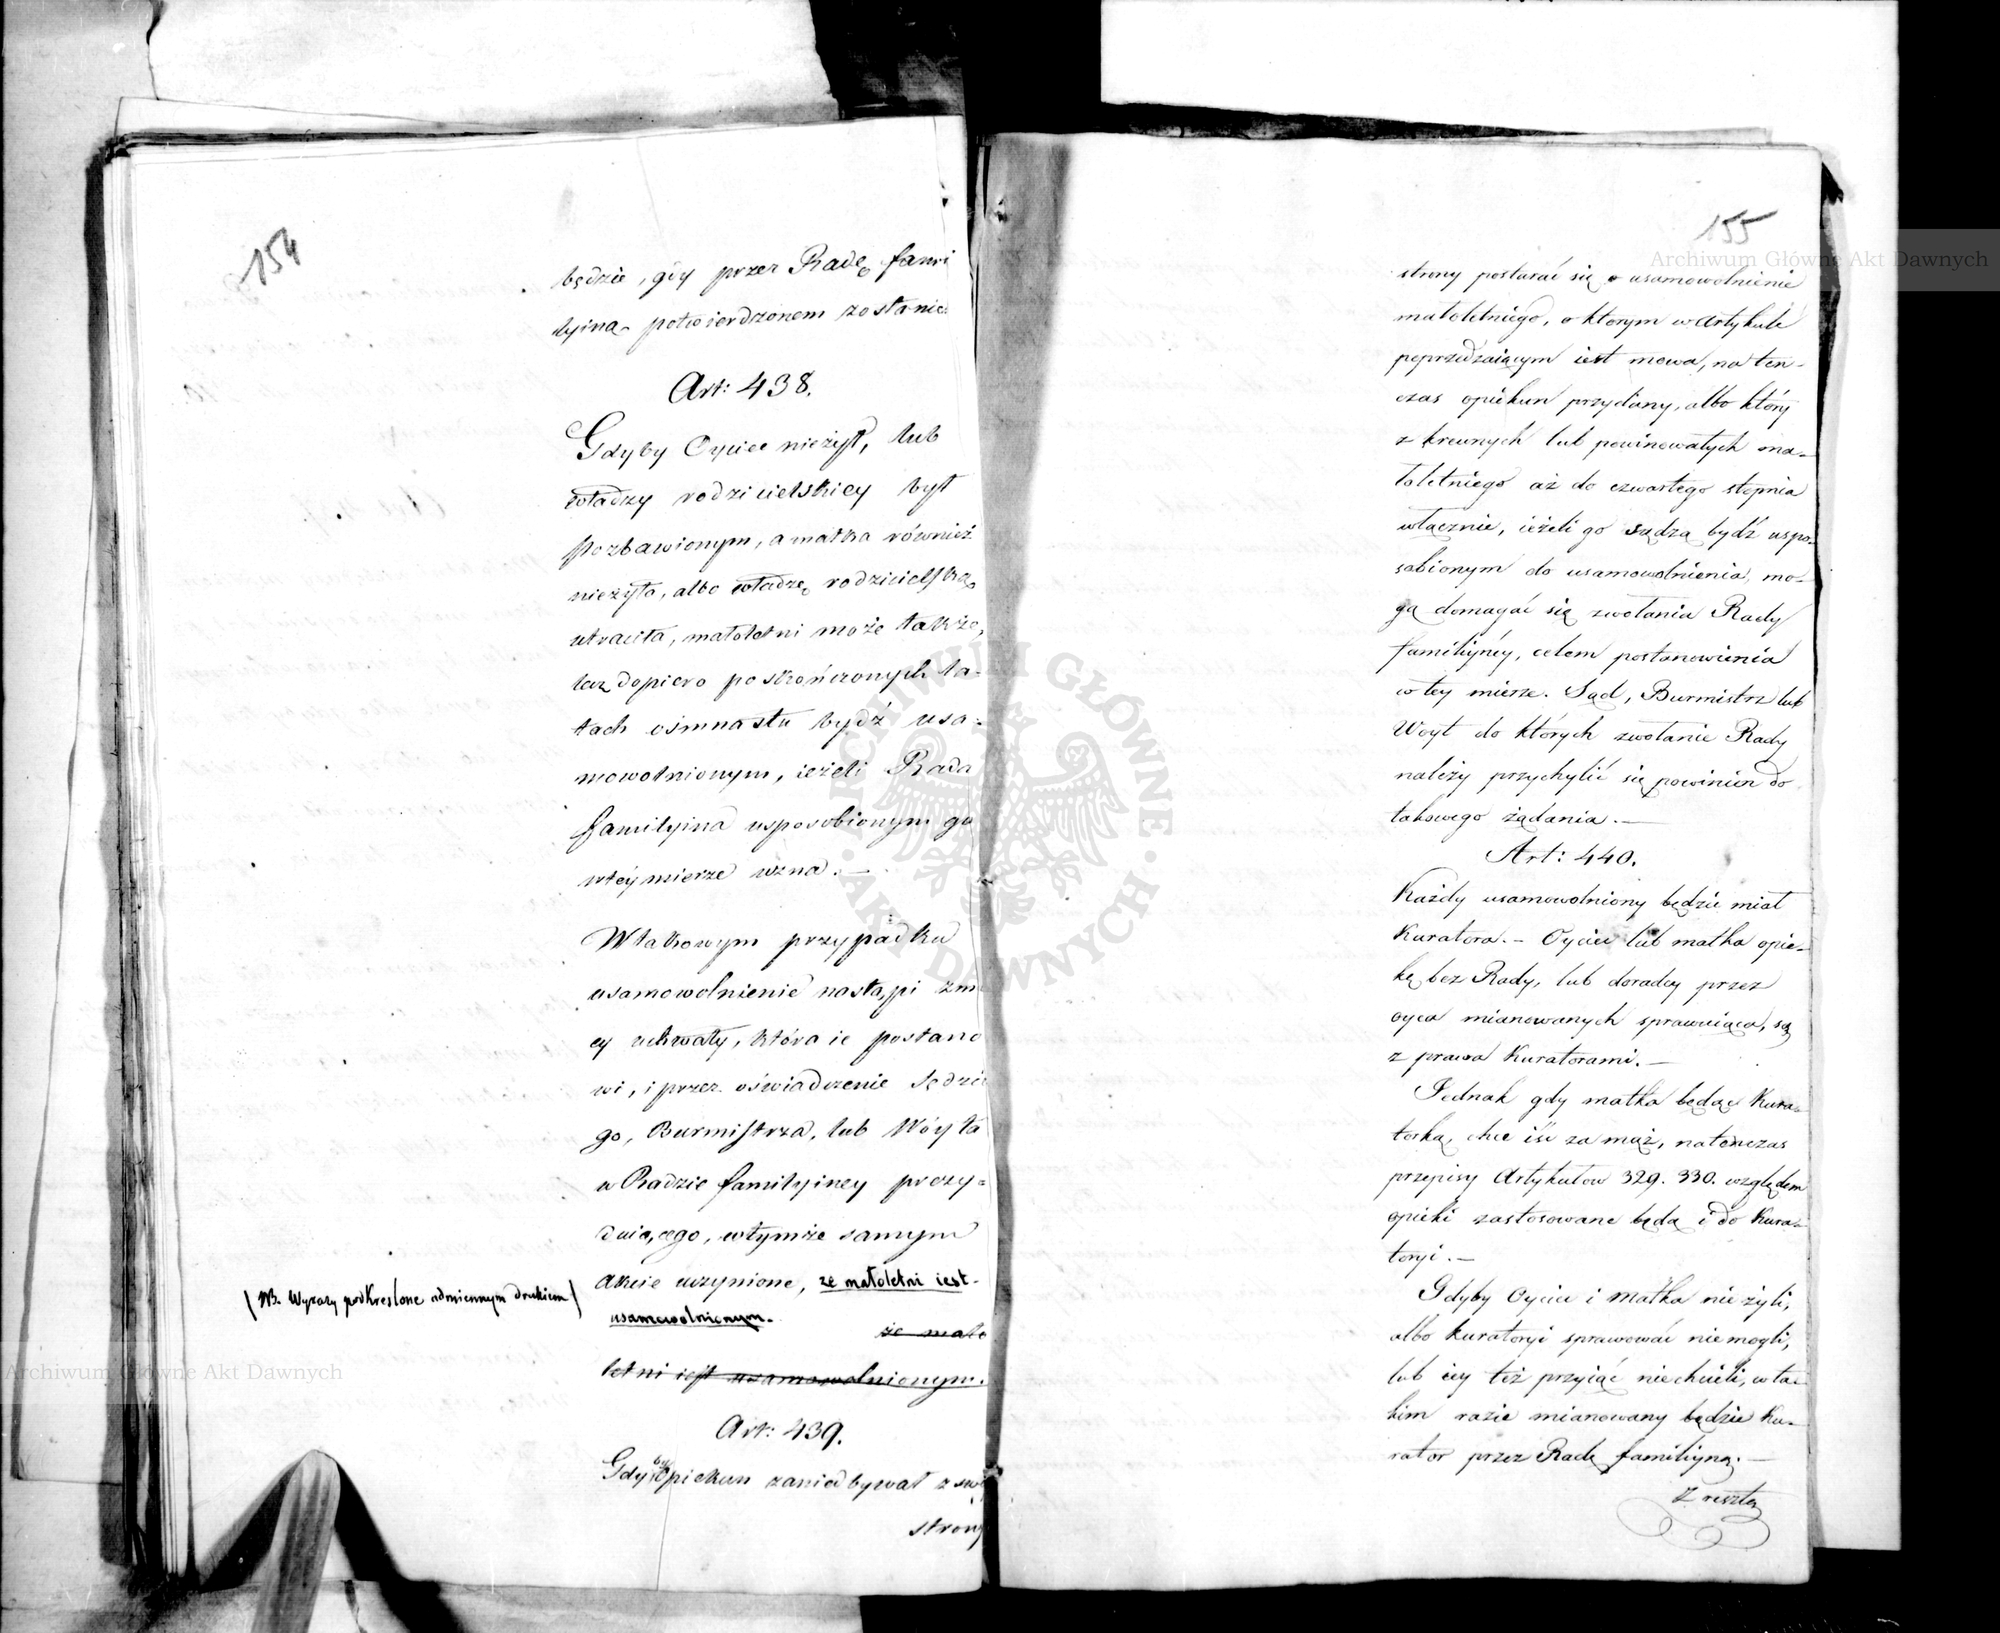 154
będzie, gdy przez Radę fami
lyina potwierdzonem zostanie.
Art: 438.
Gdyby Oyciec nieżył, lub
władzy rodzicielskiey był
pozbawionym, a matka również
nieżyła, albo władzę rodzicielską
utraciła, małoletni może także,
lecz dopiero po skończonych la-
tach ośmnastu bydź usa-
mowolnionym, ieżeli Rada
familyina usposobionym go
w téy mierze uzna. —
W takowym przypadku
usamowolnienie nastąpi z m
cy uchwały, która ie postano
wi, i przez oświadczenie Sędzie
go, Burmistrza, lub Wóyta
w Radzie familyiney prezy-
duiącego, w tymże samym
akcie uczynione, że małoletni iest-
(NB. Wyrazy podkreslone odmiennym drukiem)
usamowolnionym.
że mało
letni iest usamowolnionym.
Art: 439.
Gdyby Opiekun zaniedbywał z swé
strony
155
strony postarać się o usamowolnienie
małoletniego, o ktorym w Artykule
poprzedzaiącym iest mowa, na ten-
czas opiekun przydany, albo który
z krewnych lub powinowatych ma-
łoletniego aż do czwartego stopnia
włącznie, ieżeli go sądzą bydź uspo-
sobionym do usamowolnienia, mo-
gą domagać się zwołania Rady
familiyney, celem postanowienia
w tey mierze. Sąd, Burmistrz lub
Woyt do których zwołanie Rady
należy przychylić się powinien do
takowego żądania. —
Art: 440.
Każdy usamowolniony będzie miał
Kuratora. – Oyciec lub matka opie-
kę bez Rady, lub doradcy przez
oyca mianowanych sprawuiąca, są
z prawa Kuratorami. —
Jednak gdy matka będąc Kura-
torką, chce iść za mąż, natenczas
przepisy Artykułow 329. 330. względem
opieki zastosowane będą i do Kura-
toryi. —
Gdyby Oyciec i Matka nie żyli,
albo kuratoryi sprawować nie mogli,
lub iey też przyiąć nie chcieli, w ta-
kim razie mianowany będzie Ku-
rator przez Radę familiyną. —
Z resztą
Archiwum Główne Akt Dawnych
Archiwum Główne Akt Dawnych
ARCHIWUM GŁÓWNE · AKT DAWNYCH ·